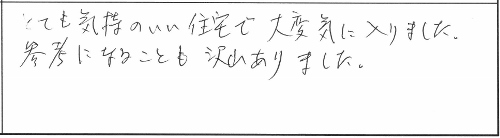 とても気持のいい住宅で大変気に入りました。
参考になることも沢山ありました。